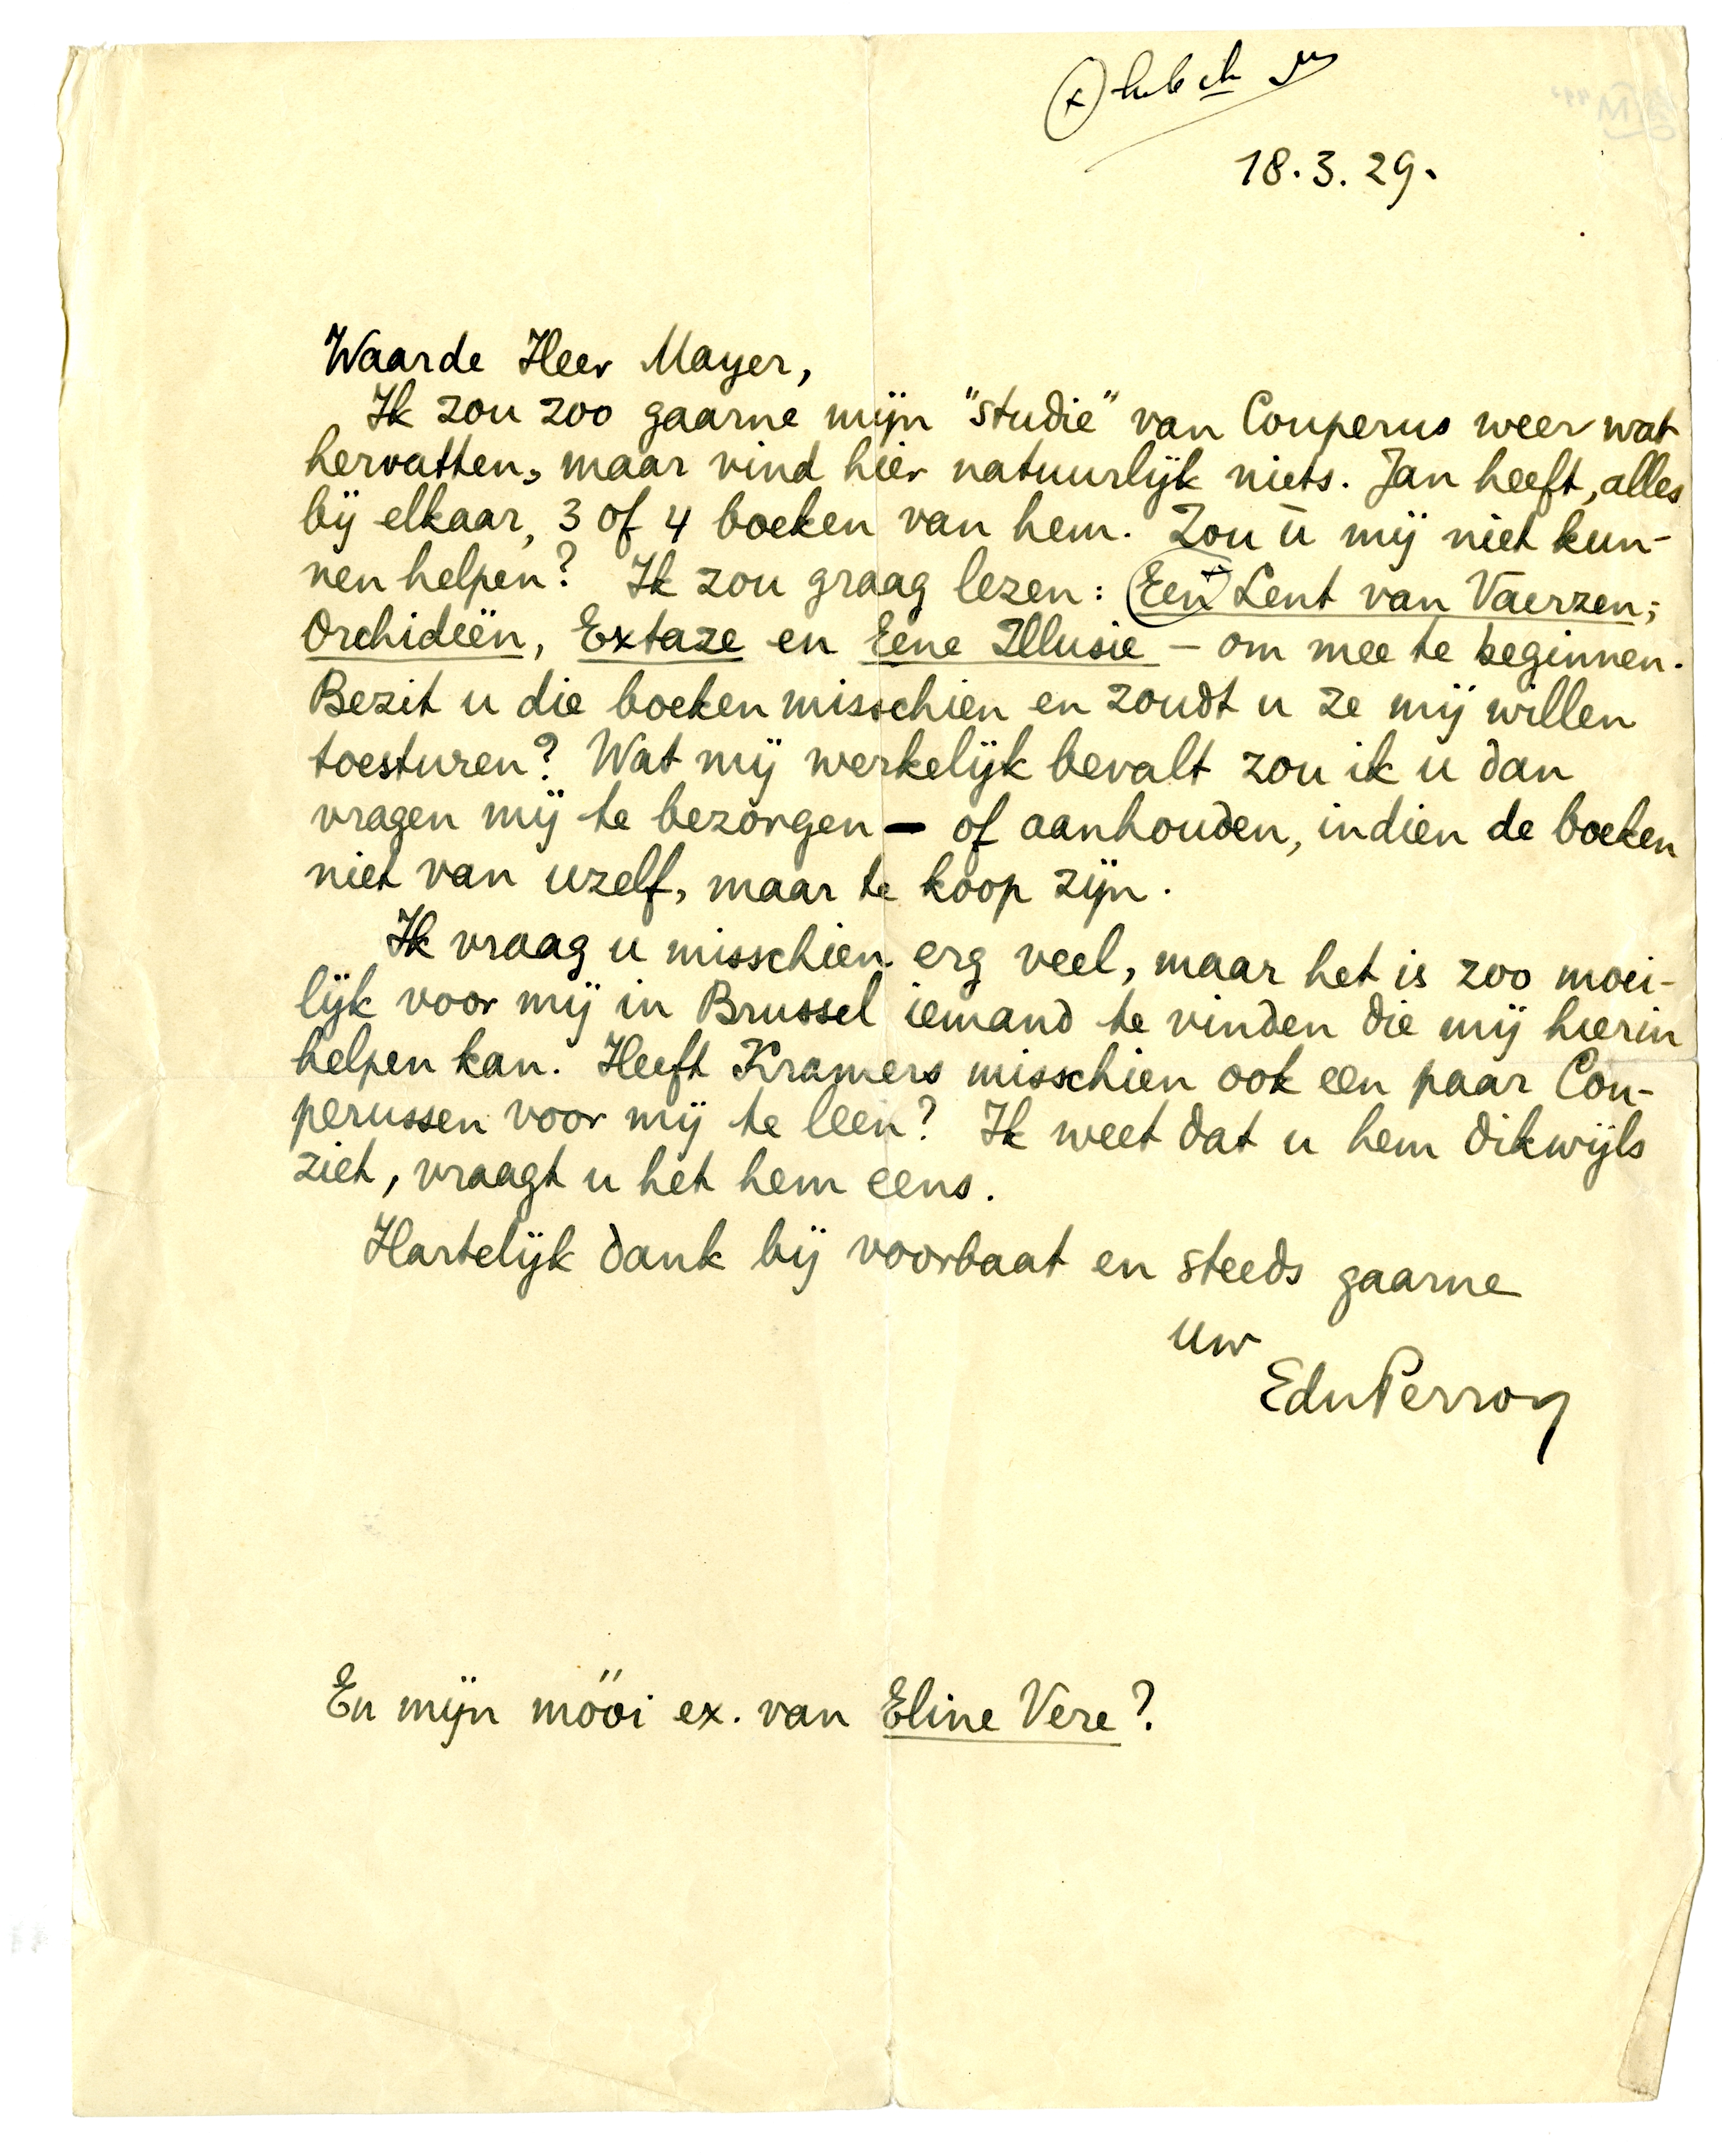 18.3.29.
Waarde Heer Mayer,
Ik zou zoo gaarne mijn "studie" van Couperus weer wat
hervatten, maar vind hier natuurlijk niets. Jan heeft, alles
bij elkaar, 3 of 4 boeken van hem. Zou ū mij niet kun-
nen helpen? Ik zou graag lezen: Een Lent van Vaerzen;
Orchideën, Extaze en Eene Illusie – om mee te beginnen.
Bezit u die boeken misschien en zoudt u ze mij willen
toesturen? Wat mij werkelijk bevalt zou ik u dan
vragen mij te bezorgen – of aanhouden, indien de boeken
niet van uzelf, maar te koop zijn.
Ik vraag u misschien erg veel, maar het is zoo moei-
lijk voor mij in Brussel iemand te vinden die mij hierin
helpen kan. Heeft Kramers misschien ook een paar Cou-
perussen voor mij te leen? Ik weet dat u hem dikwijls
ziet, vraagt u het hem eens.
Hartelijk dank bij voorbaat en steeds gaarne
uw
EduPerron
En mijn móói ex. van Eline Vere?